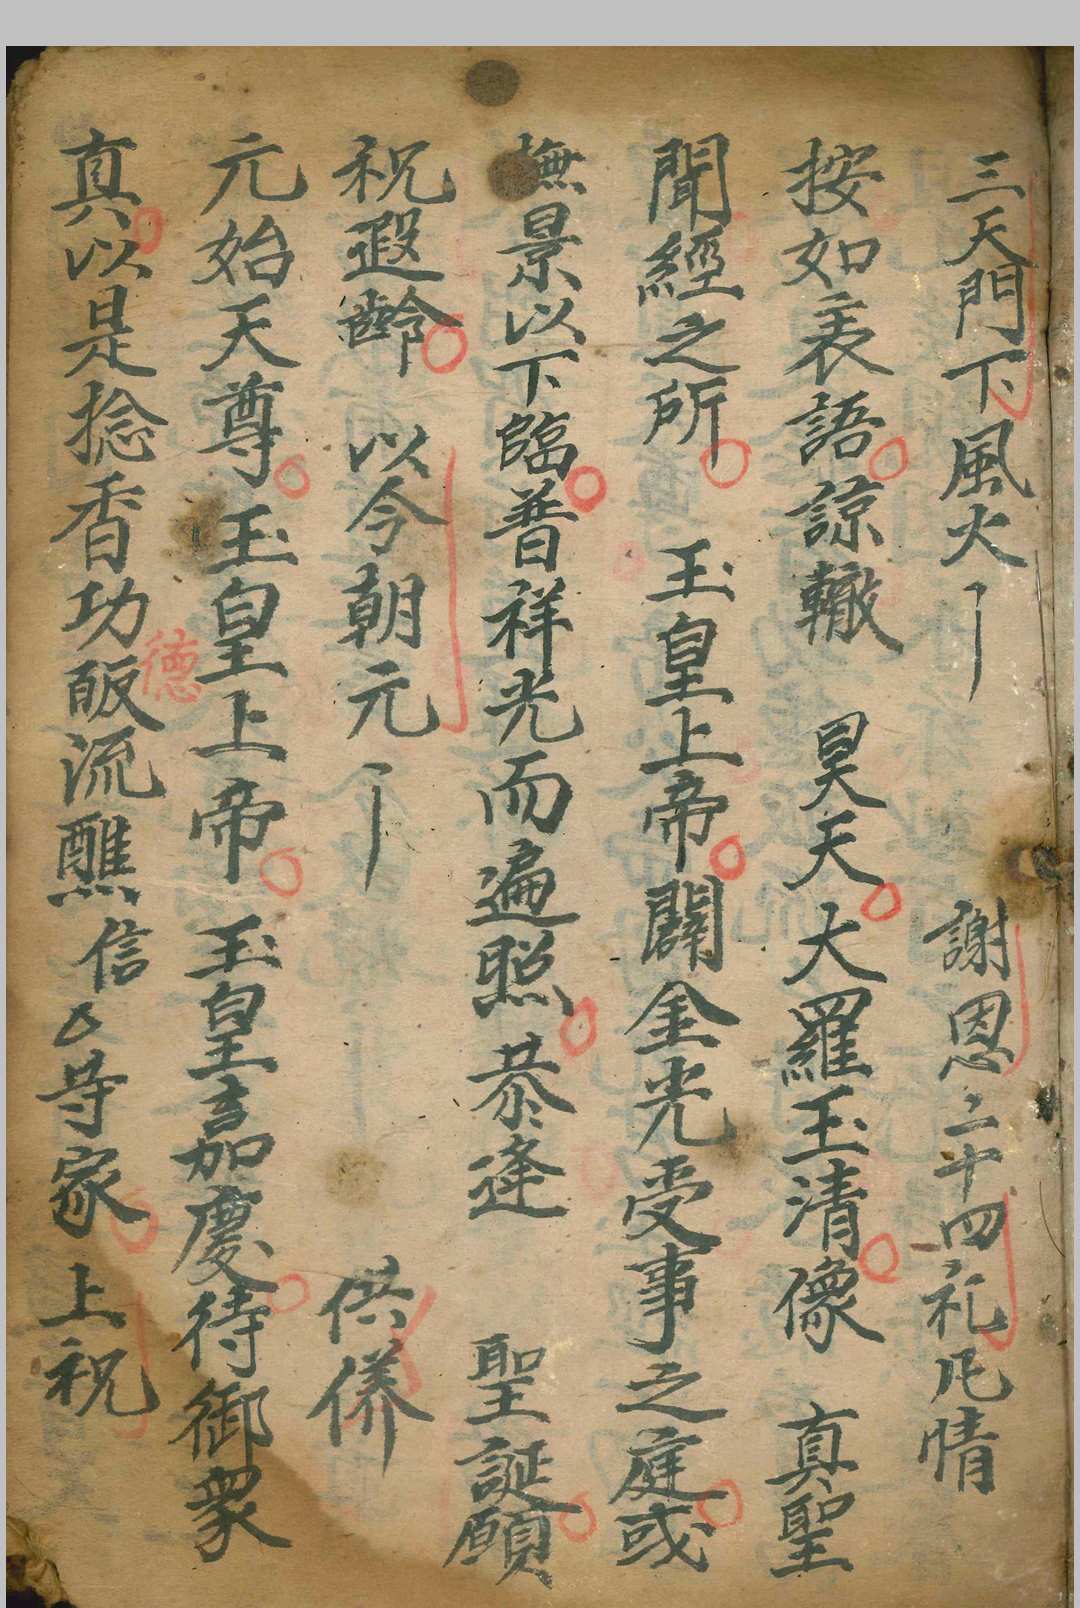 三天門下風火 謝恩二十四礼凡情
按如表語諒轍 昊天大羅玉清像 真聖
聞經之所 玉皇上帝闢金光受事之庭或
撫景以下臨普祥光而遍照恭逢 聖誕願
祝遐齡 以今朝元 供儀
元始天尊玉皇上帝玉皇嘉慶待御衆
真以是捻香功德皈流醮信 等家 上祝